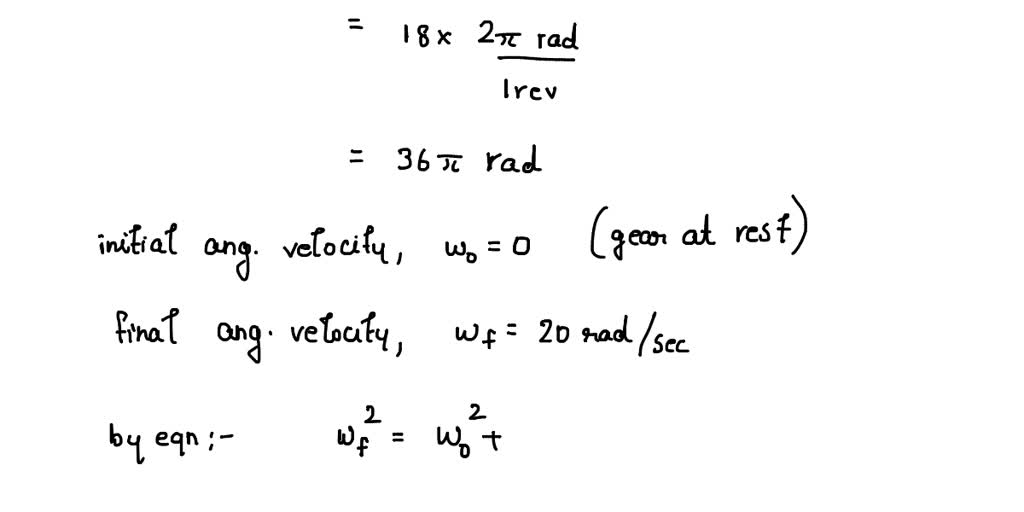 = 18 x 2π rad
1rev
= 36 π rad
initial ang. velocity, ω₀ = 0 (gear at rest)
final ang. velocity, ωf = 20 rad/sec
by eqn :- ωf² = ω₀² +